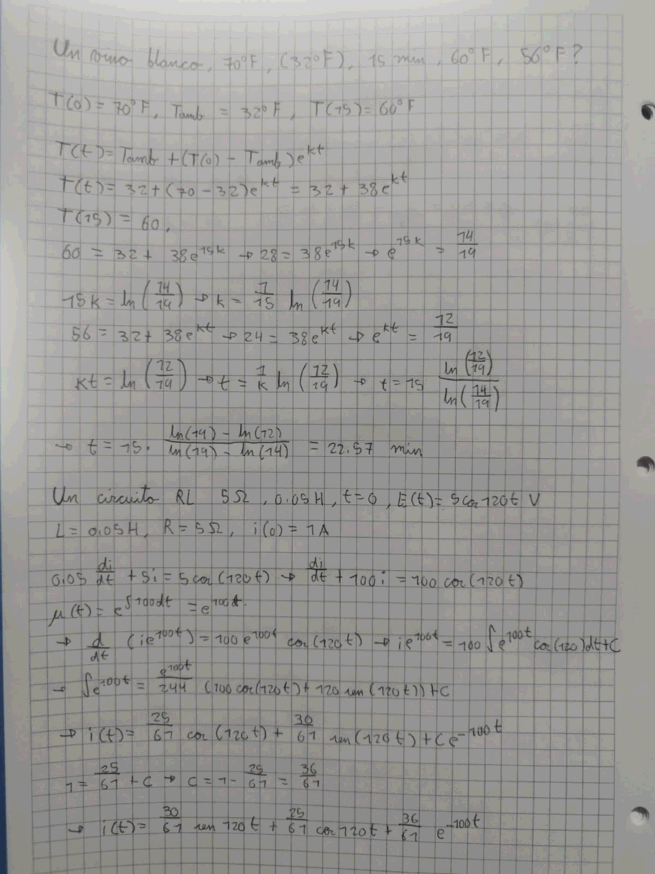 Un vino blanco, 70°F, (32°F), 15 min, 60°F, 56°F?
T(0) = 70°F, Tamb = 32°F, T(15) = 60°F
T(t) = Tamb + (T(0) - Tamb)e^kt
T(t) = 32 + (70 - 32)e^kt = 32 + 38e^kt
T(15) = 60,
60 = 32 + 38e^15k → 28 = 38e^15k → e^15k = 14/19
15k = ln(14/19) → k = 1/15 ln(14/19)
56 = 32 + 38e^kt → 24 = 38e^kt → e^kt = 12/19
kt = ln(12/19) → t = 1/k ln(12/19) → t = 15 ln(12/19)/ln(14/19)
→ t = 15 · (ln(19) - ln(12))/(ln(19) - ln(14)) = 22.57 min
Un circuito RL 5Ω, 0.05H, t=0, E(t) = 5cos120t V
L = 0.05H, R = 5Ω, i(0) = 1A
0.05 di/dt + 5i = 5cos(120t) → di/dt + 100i = 100 cos(120t)
μ(t) = e^∫100dt = e^100t.
→ d/dt (ie^100t) = 100e^100t cos(120t) → ie^100t = 100∫e^100t cos(120)dt+C
→ ∫e^100t = e^100t/244 (100 cos(120t) + 120 sen(120t)) + C
→ i(t) = 25/61 cos(120t) + 30/61 sen(120t) + Ce^-100t
1 = 25/61 + C → C = 1 - 25/61 = 36/61
→ i(t) = 30/61 sen 120t + 25/61 cos 120t + 36/61 e^-100t